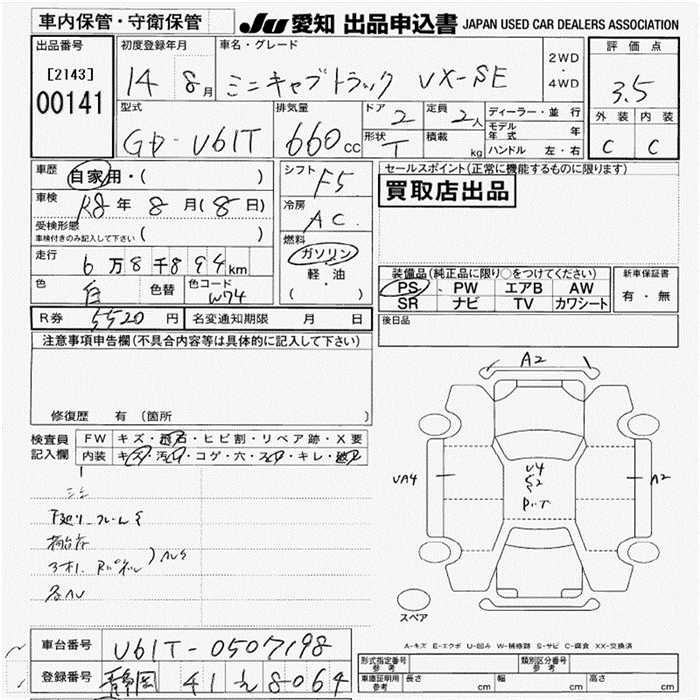 車内保管・守衛保管
JU 愛知 出品申込書 JAPAN USED CAR DEALERS ASSOCIATION
出品番号
[2143]
00141
初度登録年月
14 8月
車名・グレード
ミニキャブトラック VX-SE
2WD
・
4WD
評価点
3.5
外装 内装
C C
型式
GD-U61T
排気量
660cc
ドア 2
形状 T
定員 2人
積載 kg
ディーラー・並行
モデル年式 年
ハンドル 左・右
車歴
自家用・( )
車検
R8年 8月(8日)
受検形態
車検付きのみ記入して下さい ( )
走行
6万8千894km
色 白 色替 色コード W74
シフト F5
冷房 AC
燃料
ガソリン
軽・油
( )
セールスポイント(正常に機能するものに限ります)
買取店出品
装備品(純正品に限り○をつけてください)
PS・PW エアB AW
SR ナビ TV カワシート
新車保証書
有・無
R券 5520円 名変通知期限 月 日
後日品
注意事項申告欄(不具合内容等は具体的に記入して下さい)
修復歴 有(箇所 )
検査員記入欄
FW キズ・飛石・ヒビ割・リペア跡・X要
内装 キズ・汚れ・コゲ・穴・スレ・キレ・破れ
下廻り フレームS
荷台S
A2
UA4
U4
S2
A2
スペア
A-キズ E-エクボ U-凹み W-補修跡 S-サビ C-腐食 XX-交換済
車台番号 U61T-0507198
登録番号 静岡 41 え 8064
形式指定番号 参考 類別区分番号 参考
車庫証明用 参考 長さ cm 幅 cm 高さ cm